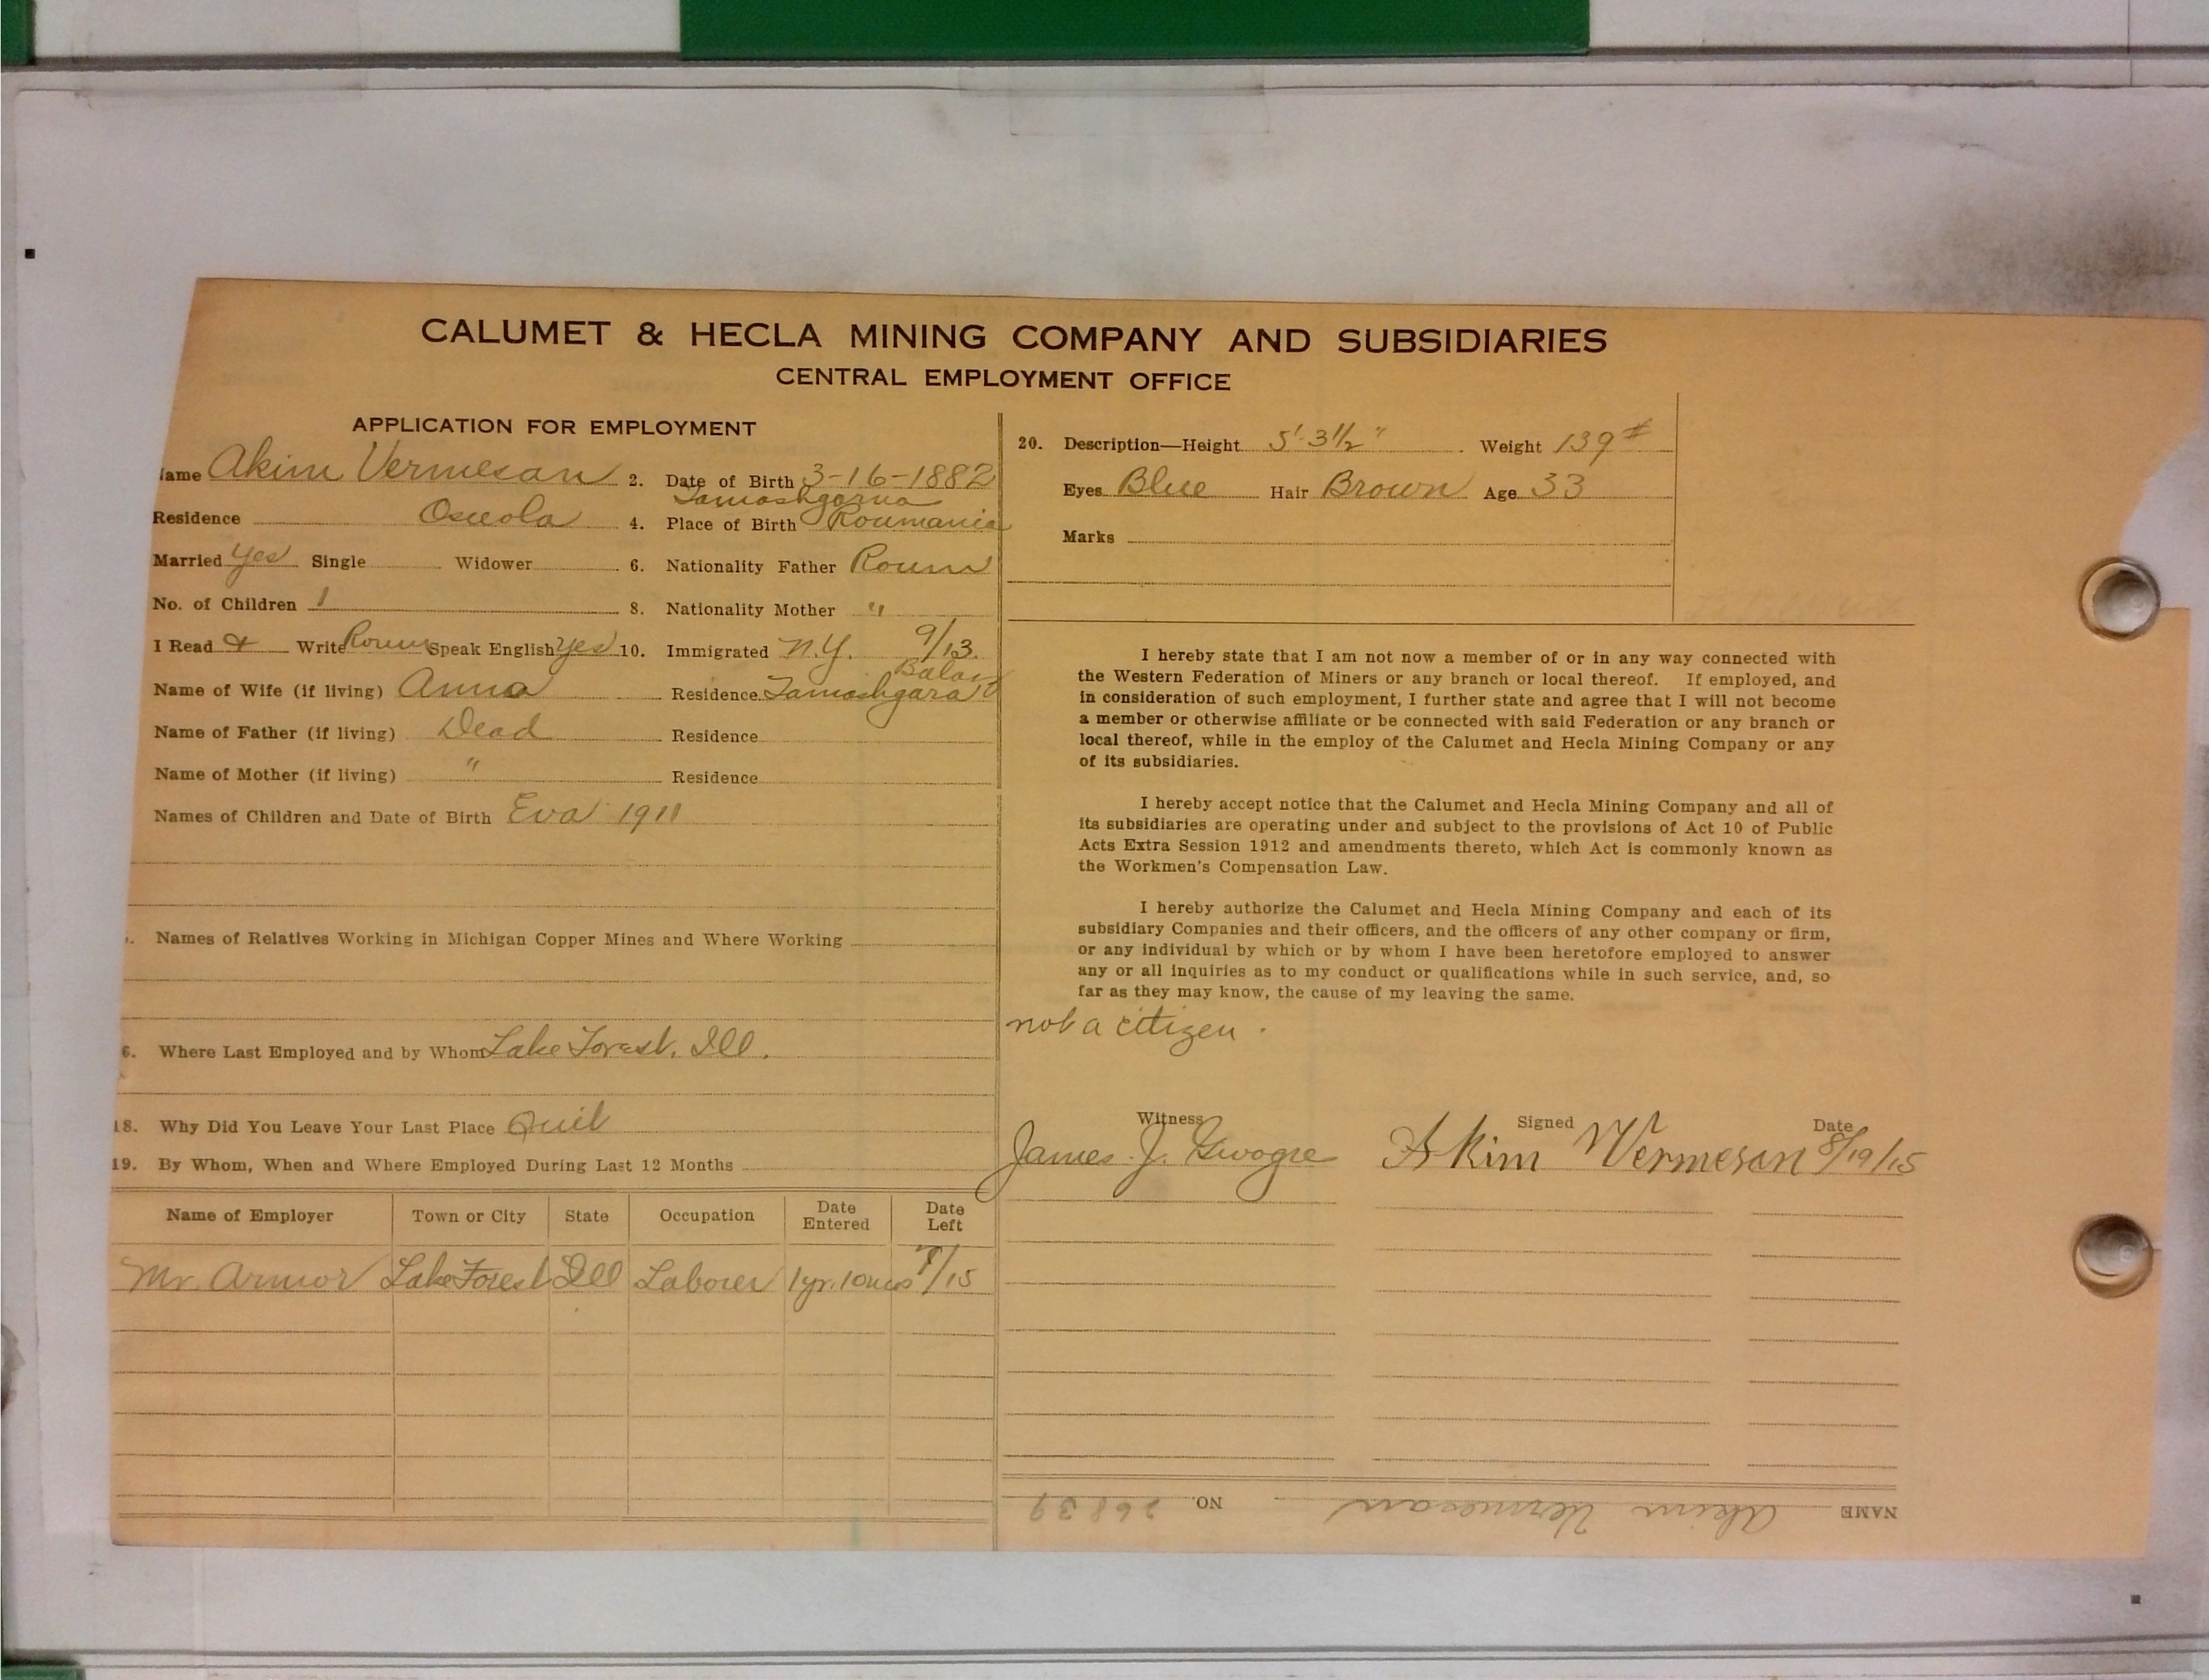 CALUMET & HECLA MINING COMPANY AND SUBSIDIARIES
CENTRAL EMPLOYMENT OFFICE
APPLICATION FOR EMPLOYMENT
Name Akim Vermesan 2. Date of Birth 3-16-1882
Residence Osceola 4. Place of Birth Roumania
Married Yes Single Widower 6. Nationality Father Roum
No. of Children 1 8. Nationality Mother "
I Read & Write Roum Speak English Yes 10. Immigrated N.Y. 9/13.
Name of Wife (if living) Anna Residence Tamashgara
Name of Father (if living) Dead Residence
Name of Mother (if living) " Residence
Names of Children and Date of Birth Eva 1911
Names of Relatives Working in Michigan Copper Mines and Where Working
6. Where Last Employed and by Whom Lake Forest, Ill.
18. Why Did You Leave Your Last Place Quit
19. By Whom, When and Where Employed During Last 12 Months
Name of Employer Town or City State Occupation Date Entered Date Left
Mr. Armor Lake Forest Ill Laborer 1yr. 10mos /15
20. Description—Height 5'-3½" Weight 139#
Eyes Blue Hair Brown Age 33
Marks
I hereby state that I am not now a member of or in any way connected with
the Western Federation of Miners or any branch or local thereof. If employed, and
in consideration of such employment, I further state and agree that I will not become
a member or otherwise affiliate or be connected with said Federation or any branch or
local thereof, while in the employ of the Calumet and Hecla Mining Company or any
of its subsidiaries.
I hereby accept notice that the Calumet and Hecla Mining Company and all of
its subsidiaries are operating under and subject to the provisions of Act 10 of Public
Acts Extra Session 1912 and amendments thereto, which Act is commonly known as
the Workmen's Compensation Law.
I hereby authorize the Calumet and Hecla Mining Company and each of its
subsidiary Companies and their officers, and the officers of any other company or firm,
or any individual by which or by whom I have been heretofore employed to answer
any or all inquiries as to my conduct or qualifications while in such service, and, so
far as they may know, the cause of my leaving the same.
not a citizen.
Witness Signed Date
James J. Akim Vermesan 8/19/15
NAME Akim Vermesan NO. 26839